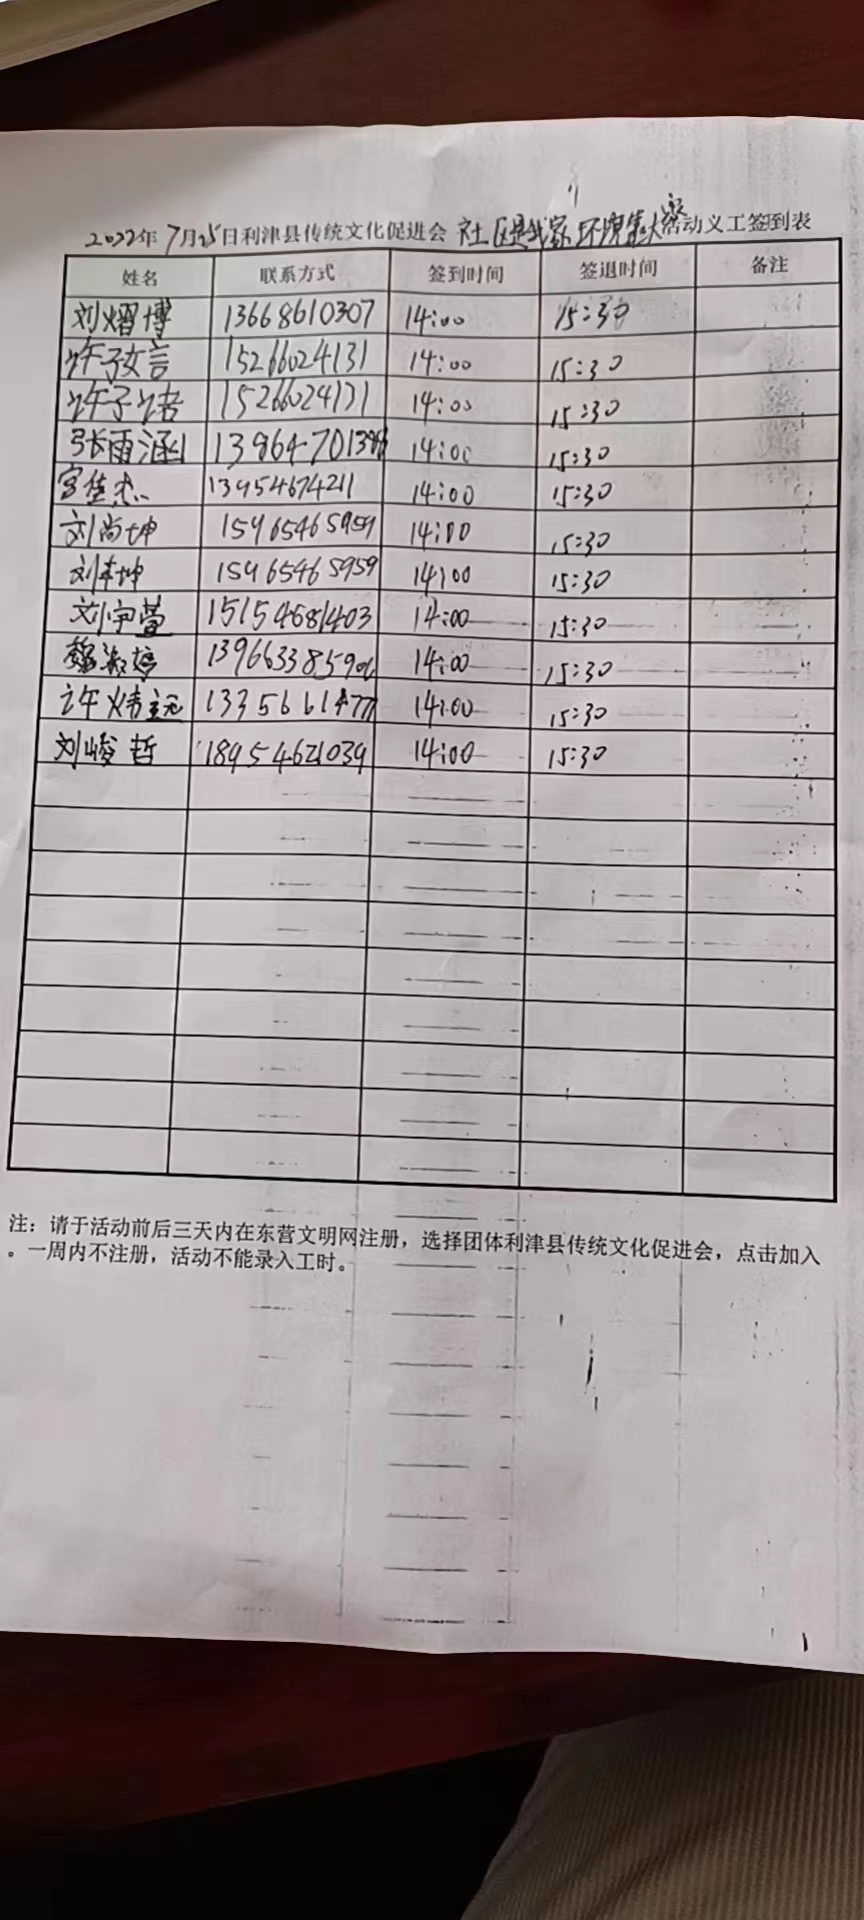 2022年7月25日利津县传统文化促进会 社区是我家 环境靠大家活动义工签到表
姓名 联系方式 签到时间 签退时间 备注
刘熠博 13668610307 14:00 15:30
许子言 15266024131 14:00 15:30
许子诺 15266024131 14:00 15:30
张雨涵 13864701398 14:00 15:30
宫佳杰 13954674211 14:00 15:30
刘尚坤 15965465959 14:00 15:30
刘丰坤 15965465959 14:00 15:30
刘宇萱 15154681403 14:00 15:30
魏淑婷 14:00 15:30
许炜远 14:00 15:30
刘峻哲 18954621039 14:00 15:30
注：请于活动前后三天内在东营文明网注册，选择团体利津县传统文化促进会，点击加入
。一周内不注册，活动不能录入工时。